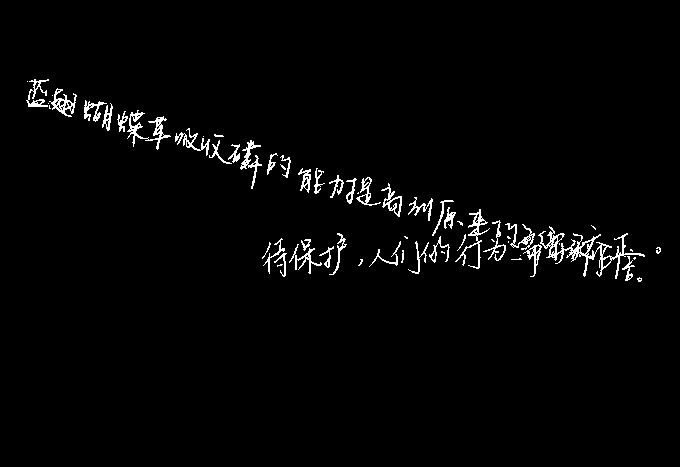 蓝翅蝴蝶草吸收磷的能力提高到原来的
待保护,人们的行为